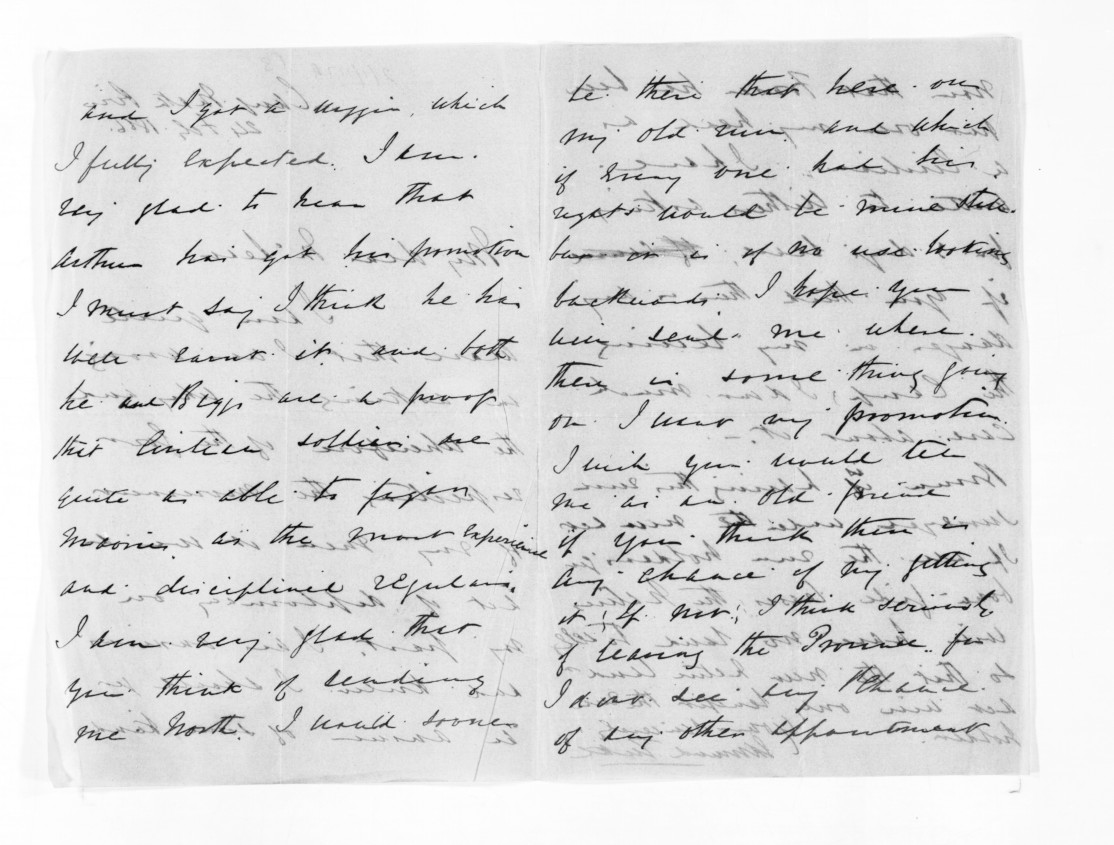 and I got a wiggin, which
I fully expected. I am.
very glad to hear that
Arthur has got his promotion
I must say I think he has
well earnt it and both
he and Biggs are a proof
that Civilian soldiers are
quite as able to fight
Maories as the most experienced
and disciplined regulars.
I am very glad that
you think of sending
me North. I would sooner
be there that here on
my old run and which
if every one had his
rights would be mine still.
but it is of no use looking
backwards. I hope you
will send me where
there is some thing going
on. I want my promotion.
I wish you would tell
me as an old friend
if you think there is
any chance of my getting
it; If not; I think seriously
of leaving the Province for
I do not see any chance
of any other appointment